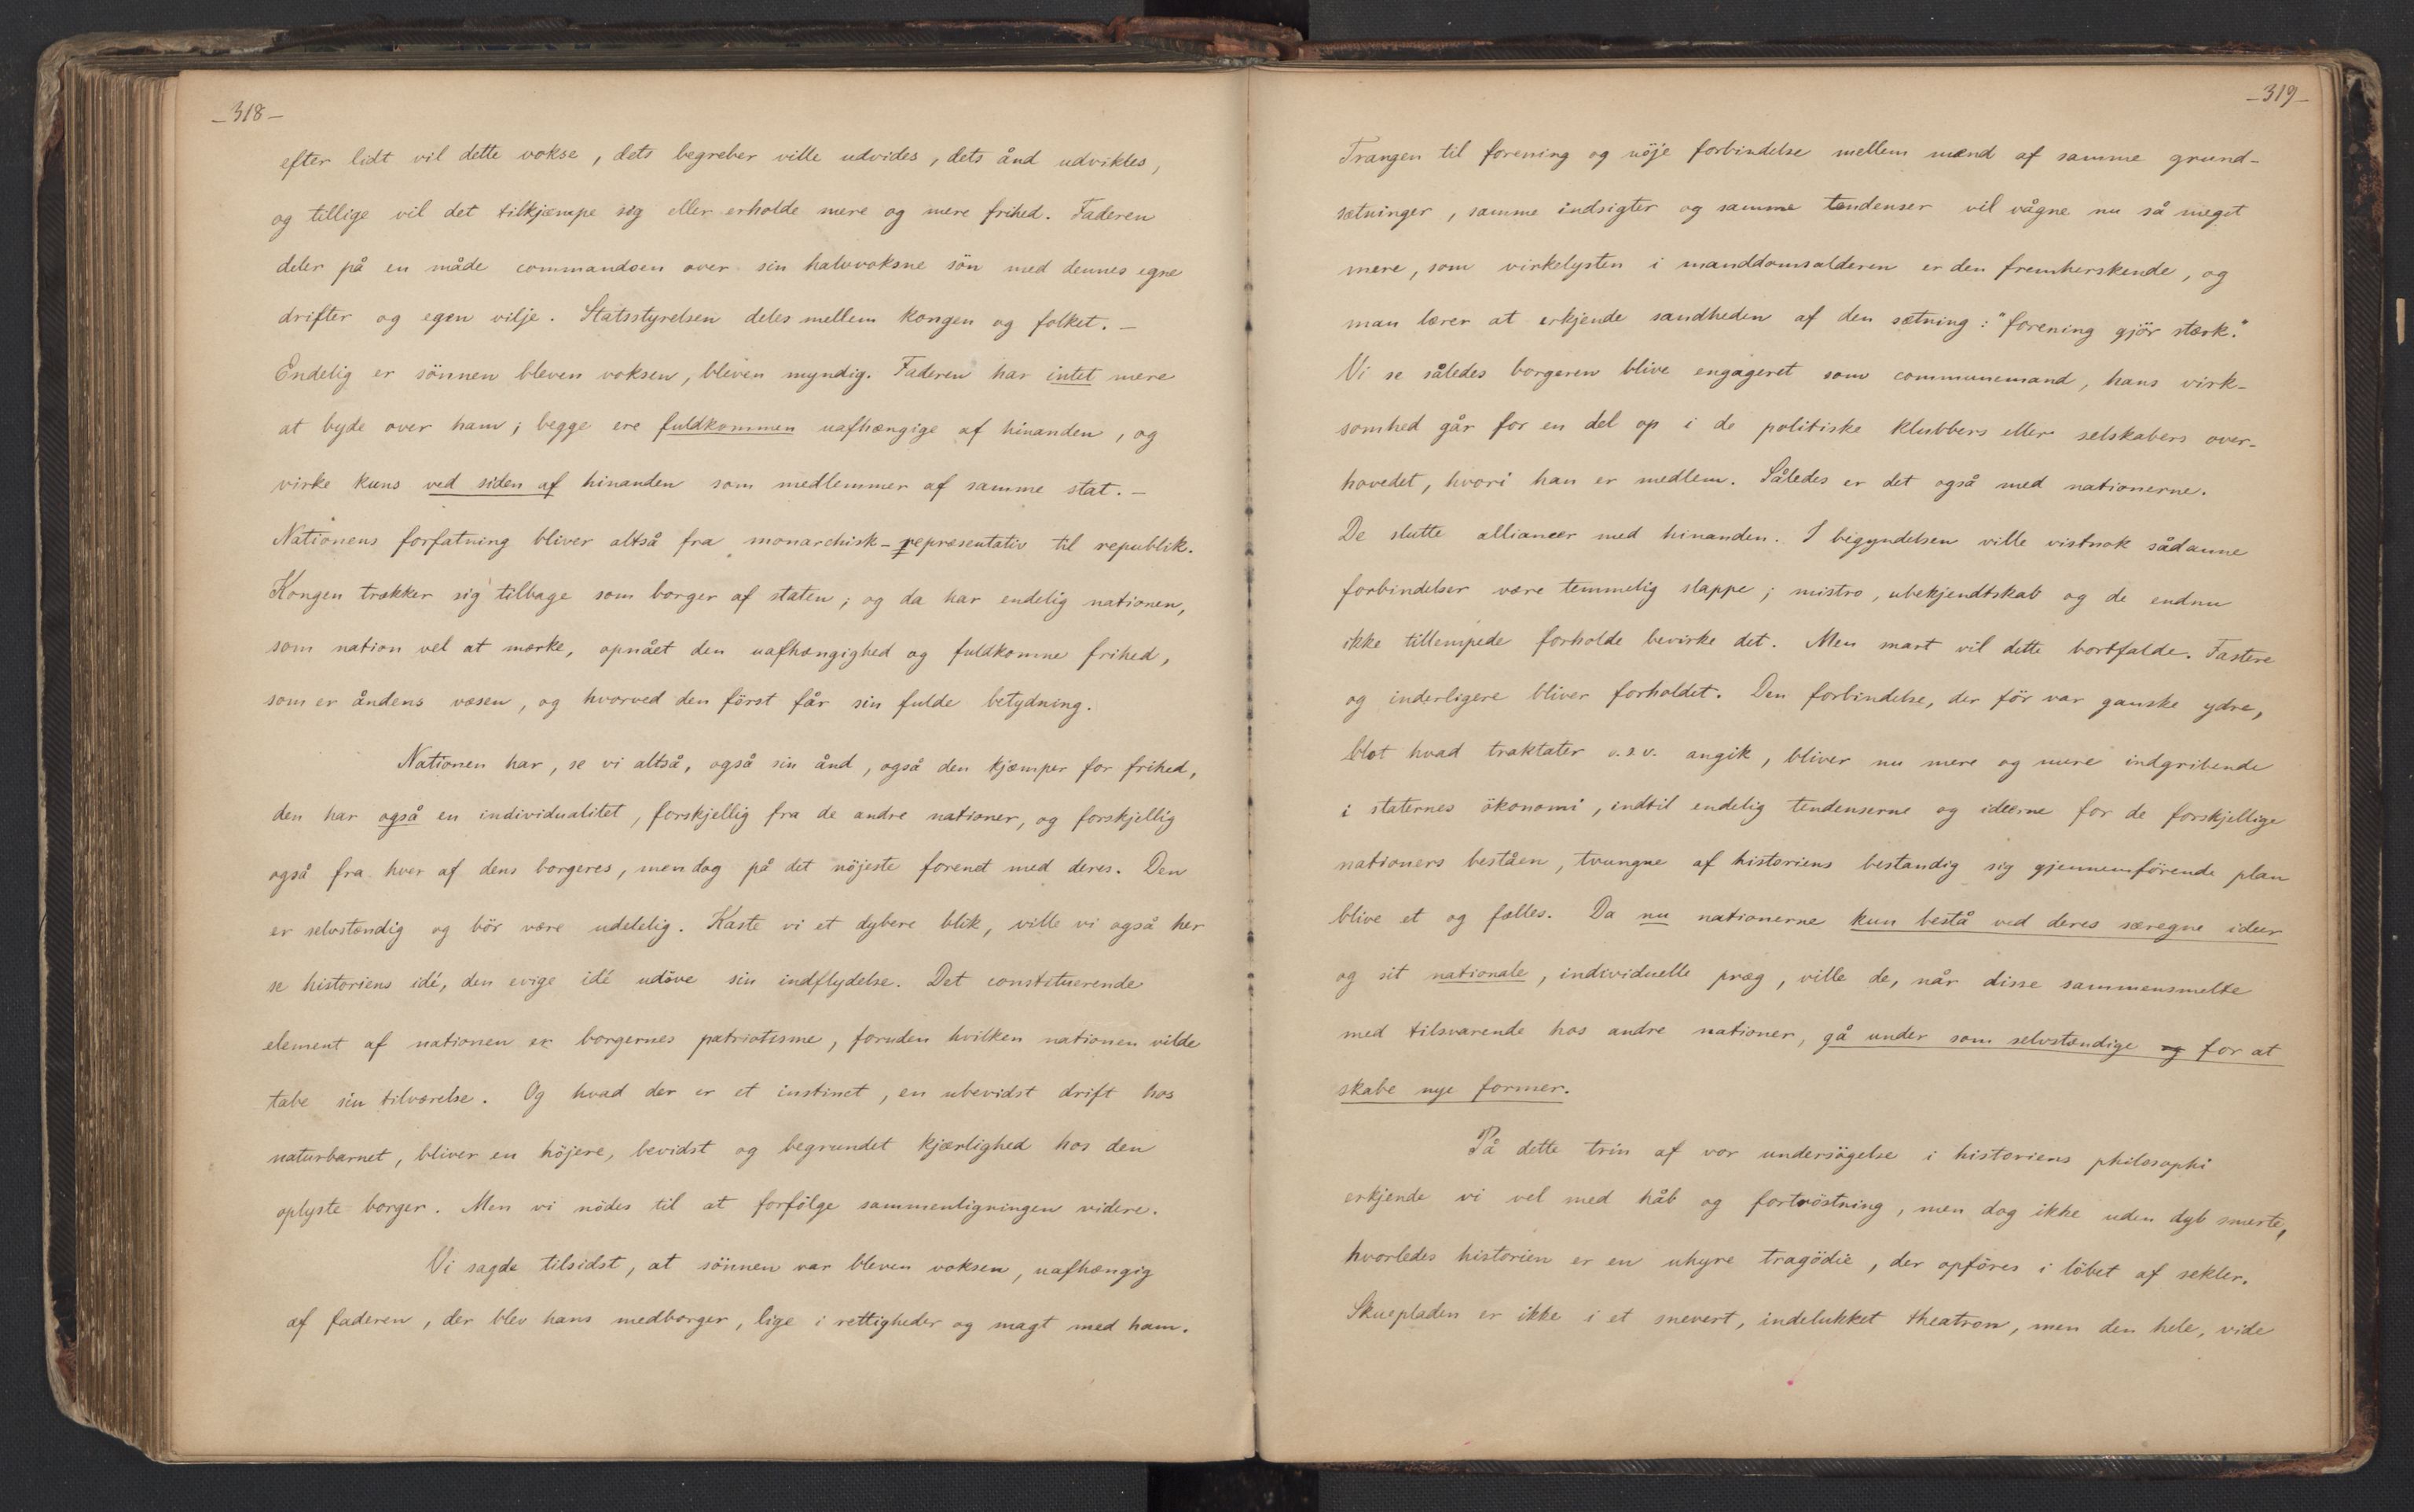 –318–
efter lidt vil dette vokse, dets begreber ville udvides, dets ånd udvikles,
og tillige vil det tilkjæmpe sig eller erholde mere og mere frihed. Faderen
deler på en måde commandoen over sin halvvoksne sön med dennes egne
drifter og egen vilje. Statsstyrelsen deles mellem kongen og folket. –
Endelig er sönnen bleven voksen, bleven myndig. Faderen har intet mere
at byde over ham; begge ere fuldkommen uafhængige af hinanden, og
virke kuns ved siden af hinanden som medlemmer af samme stat. –
Nationens forfatning bliver altså fra monarchisk-repræsentativ til republik.
Kongen trækker sig tilbage som borger af staten; og da har endelig nationen,
som nation vel at mærke, opnået den uafhængighed og fuldkomne frihed,
som er åndens væsen, og hvorved den först får sin fulde betydning.
Nationen har, se vi altså, også sin ånd, også den kjæmper for frihed,
den har også en individualitet, forskjellig fra de andre nationer, og forskjellig
også fra hver af dens borgeres, men dog på det nöjeste forenet med deres. Den
er selvstændig og bör være udelelig. Kaste vi et dybere blik, ville vi også her
se historiens idé, den evige idé udöve sin indflydelse. Det constituerende
element af nationen er borgernes patriotisme, foruden hvilken nationen vilde
tabe sin tilværelse. Og hvad der er et instinct, en ubevidst drift hos
naturbarnet, bliver en höjere, bevidst og begrundet kjærlighed hos den
oplyste borger. Men vi nödes til at forfölge sammenligningen videre.
Vi sagde tilsidst, at sönnen var bleven voksen, uafhængig
af faderen, der blev hans medborger, lige i rettigheder og magt med ham.
–319–
Trangen til forening og nöje forbindelse mellem mænd af samme grund-
sætninger, samme indsigter og samme tendenser vil vågne nu så meget
mere, som virkelysten i manddomsalderen er den fremherskende, og
man lærer at erkjende sandheden af den sætning: "forening gjör stærk."
Vi se således borgeren blive engageret som communemand, hans virk-
somhed går for en del op i de politiske klubbers eller selskabers over-
hovedet, hvori han er medlem. Således er det også med nationerne.
De slutte alliancer med hinanden. I begyndelsen ville vistnok sådanne
forbindelser være temmelig slappe; mistro, ubekjendtskab og de endnu
ikke tillempede forholde bevirke det. Men snart vil dette bortfalde. Fastere
og inderligere bliver forholdet. Den forbindelse, der för var ganske ydre,
blot hvad traktater o.s.v. angik, bliver nu mere og mere indgribende
i staternes ökonomi, indtil endelig tendenserne og ideerne for de forskjellige
nationers beståen, tvungne af historiens bestandig sig gjennemförende plan
blive et og fælles. Da nu nationerne kun bestå ved deres særegne ideer
og sit nationale, individuelle præg, ville de, når disse sammensmelte
med tilsvarende hos andre nationer, gå under som selvstændige og for at
skabe nye former.
På dette trin af vor undersögelse i historiens philosophi
erkjende vi vel med håb og fortröstning, men dog ikke uden dyb smerte,
hvorledes historien er en uhyre tragödie, der opföres i löbet af sekler.
Skuepladen er ikke i et snevert, indelukket theatron, men den hele, vide